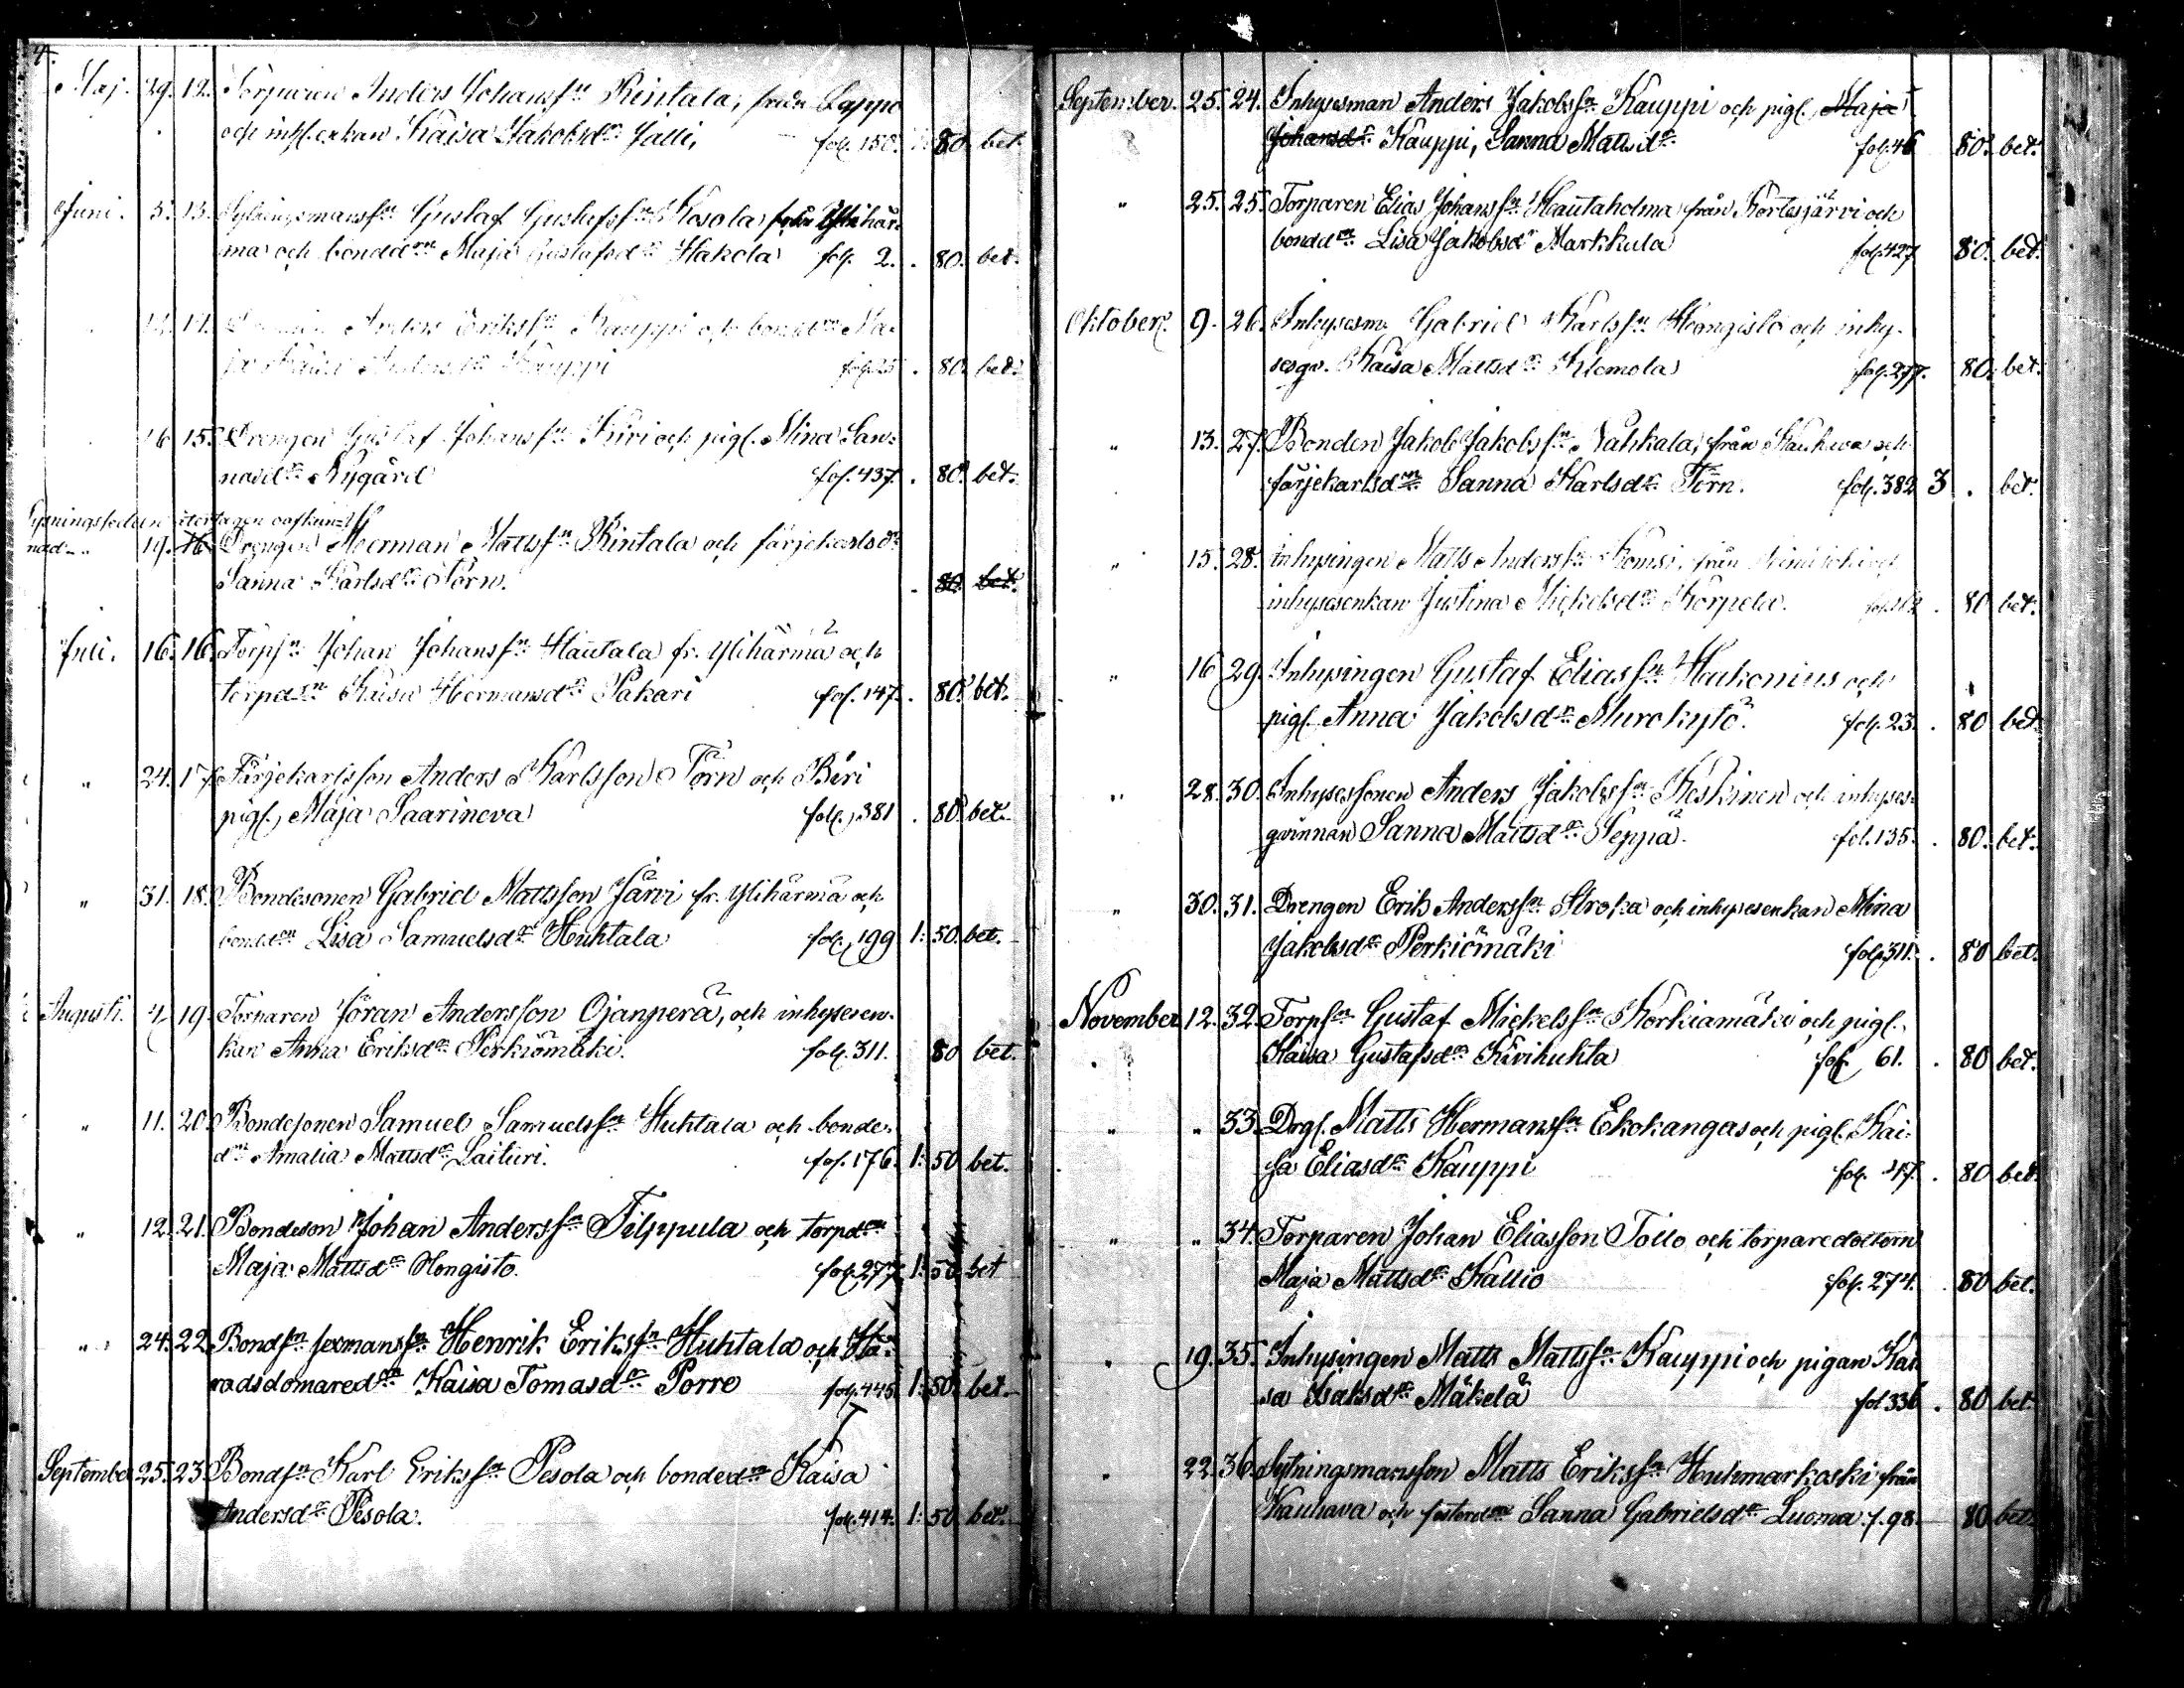 4.
Maj. 29. 12. Torparen Anders Johansſn Rintala, från Lappo
och inhs. enkan Kaisa Jakobsdr Jalli, fol. 150. 80. bet.
Juni. 5. 13. Sytningsmansſn Gustaf Gustafsſn Kosola från Ylihär-
ma och bonddn Maja Gustafsdr Hakola fol. 2. . 80. bet.
14. Anders Eriksſn Kauppi och bonddn Ma-
ja Andersdr Kauppi fol. 25 . 80. bet.
16 15. Drengen Gustaf Johansſn Kivi och pigſ. Mina San-
nasdr Nygård fol. 437. . 80. bet.
Lysningssedeln återtagen oafkun-
nad - " 19. 16 Drengen Herman Mattsſn Rintala och färjekarlsdn
Sanna Karlsdr Törn. . 80. bet.
Juli. 16. 16. Torpſn Johan Johansſn Hautala fr. Ylihärmä och
torpdn Kaisa Hermansdr Pakari fol. 147. . 80. bet.
" 24. 17. Färjekarlsſon Anders Karlsſon Törn och
pigſ. Maja Saarineva fol. 381 . 80. bet.
" 31. 18. Bondesonen Gabriel Mattsſon Järvi fr. Ylihärmä och
bonddn Lisa Samuelsdr Huhtala fol. 199 1: 50. bet.
Augusti. 4. 19. Torparen Jöran Andersſon Ojanperä, och inhysesen-
kan Anna Eriksdr Perkiömäki. fol. 311. 80 bet.
" 11. 20. Bondesonen Samuel Samuelsſn Huhtala och bonde-
dn Amalia Mattsdr Laituri. fol. 176. 1: 50 bet.
" 12. 21. Bondeson Johan Andersſn Filppula och torpdn
Maja Mattsdr Hongisto. fol. 277. 1: 50 bet
" 24. 22. Bondſn sexmansſn Henrik Eriksſn Huhtala och Hä-
radsdomaredn Kaisa Tomasdr Porre fol. 445. 1: 50. bet.
September 25. 23. Bondſn Karl Eriksſn Pesola och bondedn Kaisa
Andersdr Pesola. fol. 414. 1: 50 bet.
September. 25. 24. Inhysesman Anders Jakobsſn Kauppi och pigſ. Maja
Johansdr Kauppi, Sanna Mattsdr fol. 46 80. bet.
" 25. 25. Torparen Elias Johansſn Hautaholma från Kortesjärvi och
bonddn Lisa Jakobsdr Markkula fol. 427 80. bet.
Oktober. 9. 26. Inhysesm. Gabriel Karlsſn Hongisto och inhy-
sesqv. Kaisa Mattsdr Klemola fol. 277. 80. bet.
" 13. 27. Bonden Jakob Jakobsſn Nahkala, från Kauhava och
färjekarlsdn Sanna Karlsdr Törn. fol. 382 3 . bet.
" 15. 28. Inhysingen Matts Andersſn från
inhysesenkan Justina Mickelsdr Korpela. . 80 bet.
" 16 29. Inhysingen Gustaf Eliasſn Haukonius och
pigſ. Anna Jakobsdr Murokytö. fol. 23. . 80 bet.
" 28. 30. Inhysesſonen Anders Jakobsſn Keskinen och inhyses-
qvinnan Sanna Mattsdr Seppä. fol. 135. . 80. bet.
" 30. 31. Drengen Erik Andersſn Stroka och inhysesenkan Mina
Jakobsdr Perkiömäki fol. 311. . 80 bet.
November 12. 32. Torpſn Gustaf Mickelsſn Korkiamäki och pigſ.
Kaisa Gustafsdr Kivihuhta fol. 61. . 80 bet.
" " 33. Drgſ. Matts Hermansſn Ekokangas och pigſ. Kai-
ſa Eliasdr Kauppi fol. 47. . 80 bet.
" " 34. Torparen Johan Eliasſon Tollo och torparedottern
Maja Mattsdr Kallio fol. 274. . 80 bet.
" 19. 35. Inhysingen Matts Mattsſn Kauppi och pigan Kai
sa Isaksdr Mäkelä fol 336 . 80 bet.
" 22. 36. Sytningsmansſon Matts Eriksſn Huhmarkoski från
Kauhava och fosterdn Sanna Gabrielsdr Luoma f. 98. 80 bet.